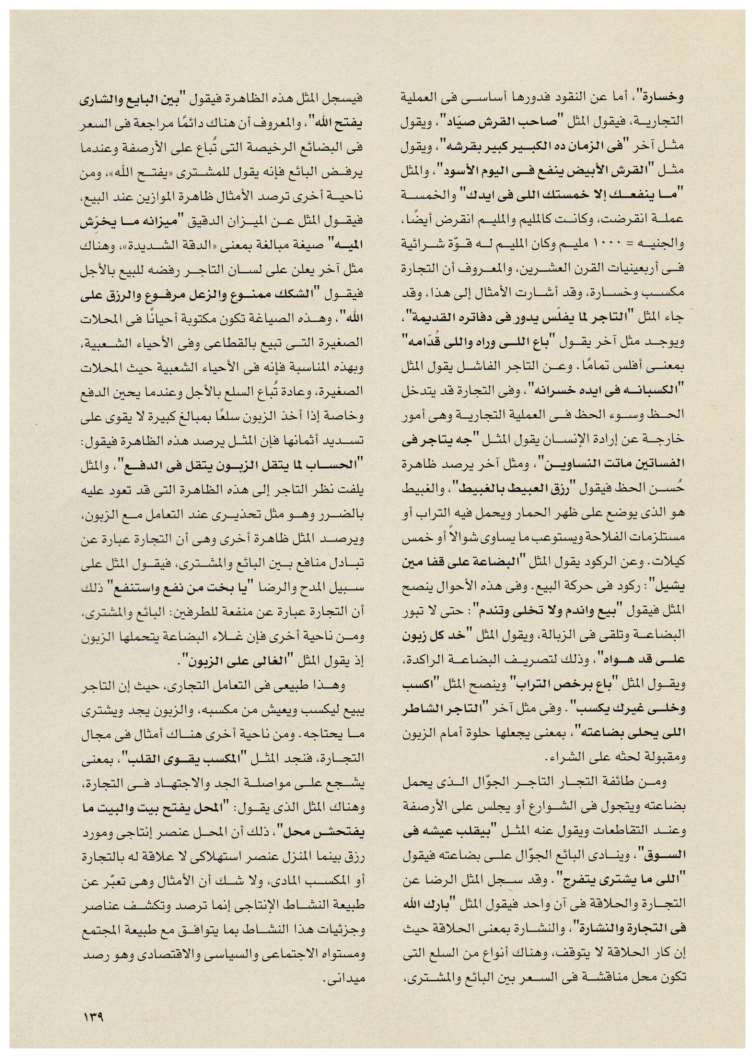 وخسارة"، أما عن النقود فدورها أساسى فى العملية
التجارية، فيقول المثل "صاحب القرش صيّاد"، ويقول
مثل آخر "فى الزمان ده الكبير كبير بقرشه"، ويقول
مثل "القرش الأبيض ينفع فى اليوم الأسود"، والمثل
"ما ينفعك إلا خمستك اللى فى ايدك" والخمسة
عملة انقرضت، وكانت كالمليم والمليم انقرض أيضًا،
والجنيه = ١٠٠٠ مليم وكان المليم له قوّة شرائية
فى أربعينيات القرن العشرين، والمعروف أن التجارة
مكسب وخسارة، وقد أشارت الأمثال إلى هذا، وقد
جاء المثل "التاجر لما يفلّس يدور فى دفاتره القديمة"،
ويوجد مثل آخر يقول "باع اللى وراه واللى قدّامه"
بمعنى أفلس تمامًا. وعن التاجر الفاشل يقول المثل
"الكسبانه فى ايده خسرانه"، وفى التجارة قد يتدخل
الحظ وسوء الحظ فى العملية التجارية وهى أمور
خارجة عن إرادة الإنسان يقول المثل "جه يتاجر فى
الفساتين ماتت النساوين"، ومثل آخر يرصد ظاهرة
حُسن الحظ فيقول "رزق العبيط بالغبيط"، والغبيط
هو الذى يوضع على ظهر الحمار ويحمل فيه التراب أو
مستلزمات الفلاحة ويستوعب ما يساوى شوالاً أو خمس
كيلات. وعن الركود يقول المثل "البضاعة على قفا مين
يشيل": ركود فى حركة البيع. وفى هذه الأحوال ينصح
المثل فيقول "بيع واندم ولا تخلى وتندم": حتى لا تبور
البضاعة وتلقى فى الزبالة، ويقول المثل "خد كل زبون
على قد هواه"، وذلك لتصريف البضاعة الراكدة،
ويقول المثل "باع برخص التراب" وينصح المثل "اكسب
وخلى غيرك يكسب". وفى مثل آخر "التاجر الشاطر
اللى يحلى بضاعته"، بمعنى يجعلها حلوة أمام الزبون
ومقبولة لحثه على الشراء.
ومن طائفة التجار التاجر الجوّال الذى يحمل
بضاعته ويتجول فى الشوارع أو يجلس على الأرصفة
وعند التقاطعات ويقول عنه المثل "بيقلب عيشه فى
السوق"، وينادى البائع الجوّال على بضاعته فيقول
"اللى ما يشترى يتفرج". وقد سجل المثل الرضا عن
التجارة والحلاقة فى آن واحد فيقول المثل "بارك الله
فى التجارة والنشارة"، والنشارة بمعنى الحلاقة حيث
إن كار الحلاقة لا يتوقف، وهناك أنواع من السلع التى
تكون محل مناقشة فى السعر بين البائع والمشترى،
فيسجل المثل هذه الظاهرة فيقول "بين البايع والشارى
يفتح الله"، والمعروف أن هناك دائمًا مراجعة فى السعر
فى البضائع الرخيصة التى تُباع على الأرصفة وعندما
يرفض البائع فإنه يقول للمشترى «يفتح الله»، ومن
ناحية أخرى ترصد الأمثال ظاهرة الموازين عند البيع،
فيقول المثل عن الميزان الدقيق "ميزانه ما يخرّش
الميه" صيغة مبالغة بمعنى «الدقة الشديدة»، وهناك
مثل آخر يعلن على لسان التاجر رفضه للبيع بالأجل
فيقول "الشكك ممنوع والزعل مرفوع والرزق على
الله"، وهذه الصياغة تكون مكتوبة أحيانًا فى المحلات
الصغيرة التى تبيع بالقطاعى وفى الأحياء الشعبية،
وبهذه المناسبة فإنه فى الأحياء الشعبية حيث المحلات
الصغيرة، وعادة تُباع السلع بالأجل وعندما يحين الدفع
وخاصة إذا أخذ الزبون سلعًا بمبالغ كبيرة لا يقوى على
تسديد أثمانها فإن المثل يرصد هذه الظاهرة فيقول:
"الحساب لما يتقل الزبون يتقل فى الدفع"، والمثل
يلفت نظر التاجر إلى هذه الظاهرة التى قد تعود عليه
بالضرر وهو مثل تحذيرى عند التعامل مع الزبون،
ويرصد المثل ظاهرة أخرى وهى أن التجارة عبارة عن
تبادل منافع بين البائع والمشترى، فيقول المثل على
سبيل المدح والرضا "يا بخت من نفع واستنفع" ذلك
أن التجارة عبارة عن منفعة للطرفين: البائع والمشترى،
ومن ناحية أخرى فإن غلاء البضاعة يتحملها الزبون
إذ يقول المثل "الغالى على الزبون".
وهذا طبيعى فى التعامل التجارى، حيث إن التاجر
يبيع ليكسب ويعيش من مكسبه، والزبون يجد ويشترى
ما يحتاجه. ومن ناحية أخرى هناك أمثال فى مجال
التجارة، فنجد المثل "المكسب يقوى القلب"، بمعنى
يشجع على مواصلة الجد والاجتهاد فى التجارة،
وهناك المثل الذى يقول: "المحل يفتح بيت والبيت ما
يفتحش محل"، ذلك أن المحل عنصر إنتاجى ومورد
رزق بينما المنزل عنصر استهلاكى لا علاقة له بالتجارة
أو المكسب المادى، ولا شك أن الأمثال وهى تعبّر عن
طبيعة النشاط الإنتاجى إنما ترصد وتكشف عناصر
وجزئيات هذا النشاط بما يتوافق مع طبيعة المجتمع
ومستواه الاجتماعى والسياسى والاقتصادى وهو رصد
ميدانى.
١٣٩